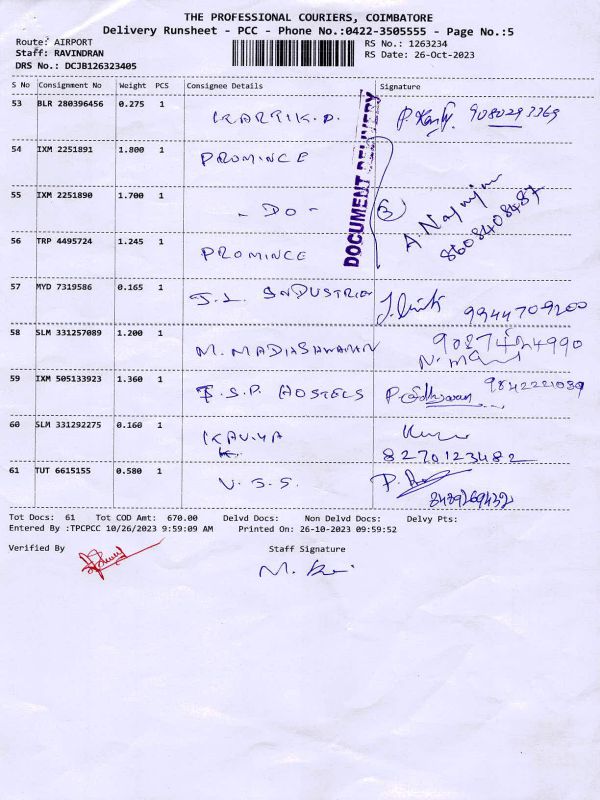 THE PROFESSIONAL COURIERS, COIMBATORE
Delivery Runsheet - PCC - Phone No.:0422-3505555 - Page No.:5
Route: AIRPORT
RS No.: 1263234
Staff: RAVINDRAN
RS Date: 26-Oct-2023
DRS No.: DCJB126323405
S No Consignment No Weight PCS Consignee Details Signature
53 BLR 280396456 0.275 1 KARTIK.D. 9080293369
DOCUMENT DELIVERY
54 IXM 2251891 1.800 1 PROMINCE
55 IXM 2251890 1.700 1 - DO - 3 8608408487
56 TRP 4495724 1.245 1 PROMINCE
57 MYD 7319586 0.165 1 INDUSTRIE 9944709200
58 SLM 331257089 1.200 1 9087424990
59 IXM 505133923 1.360 1 HOSTELS 9842221039
60 SLM 331292275 0.160 1 KAVIYA
8270123482
61 TUT 6615155 0.580 1 V.S.S.
8489269432
Tot Docs: 61 Tot COD Amt: 670.00 Delvd Docs: Non Delvd Docs: Delvy Pts:
Entered By :TPCPCC 10/26/2023 9:59:09 AM Printed On: 26-10-2023 09:59:52
Verified By Staff Signature